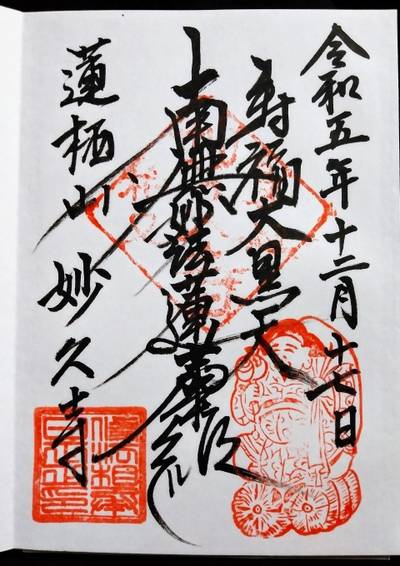 令和五年十二月十七日
寿福大黒天
南無妙法蓮華経
蓮栖山 妙久寺